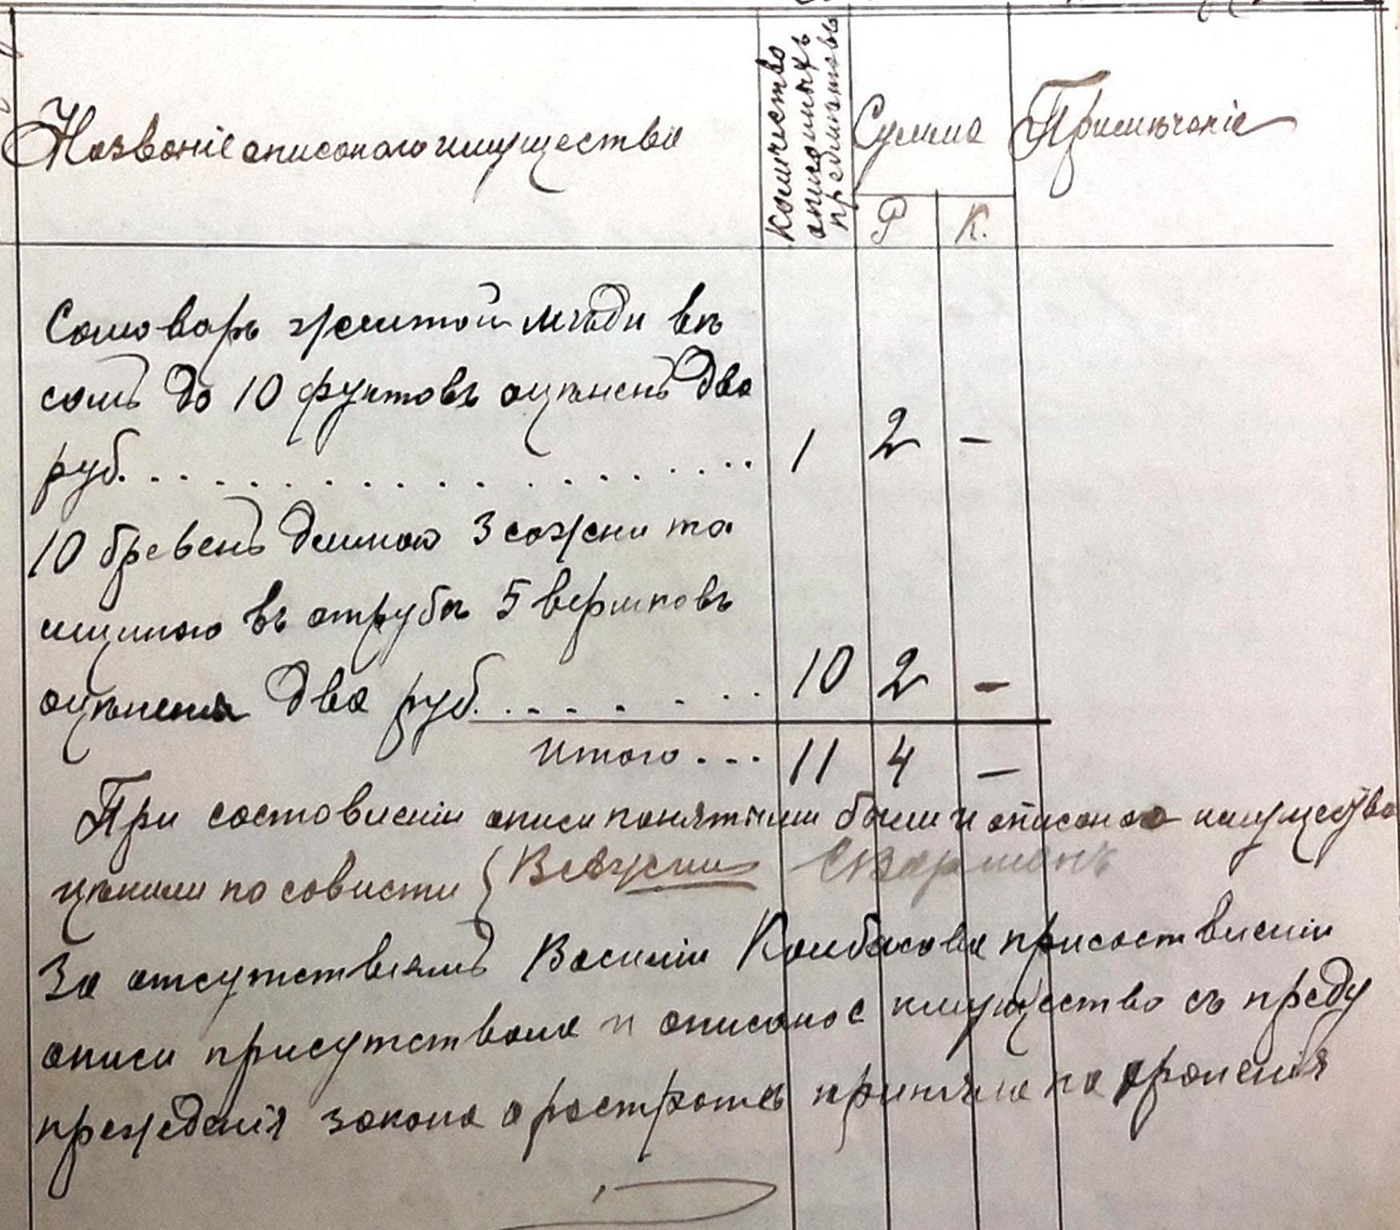 Названіе описаного имущества
Количество
описанныхъ
предметовъ
Сумма
Примѣчаніе
Р
К.
Самоваръ желтой мѣди вѣ
сомъ до 10 фунтовъ оцѣненъ два
руб. . . . . . . . . . . . . . . . . 1 2 -
10 бревенъ длиною 3 сажени то
лщиною въ отрубѣ 5 вершковъ
оцѣнена два руб. . . . . . . . 10 2 -
Итого . . . 11 4 -
При составленіи описи понятыми были и описаное имущество
цѣнили по совисти
За отсутствіемъ Василія Колбасова присоставленіи
описи присутствала и описаное имущество съ преду
прежденія закона о растратѣ приняла на хроненія